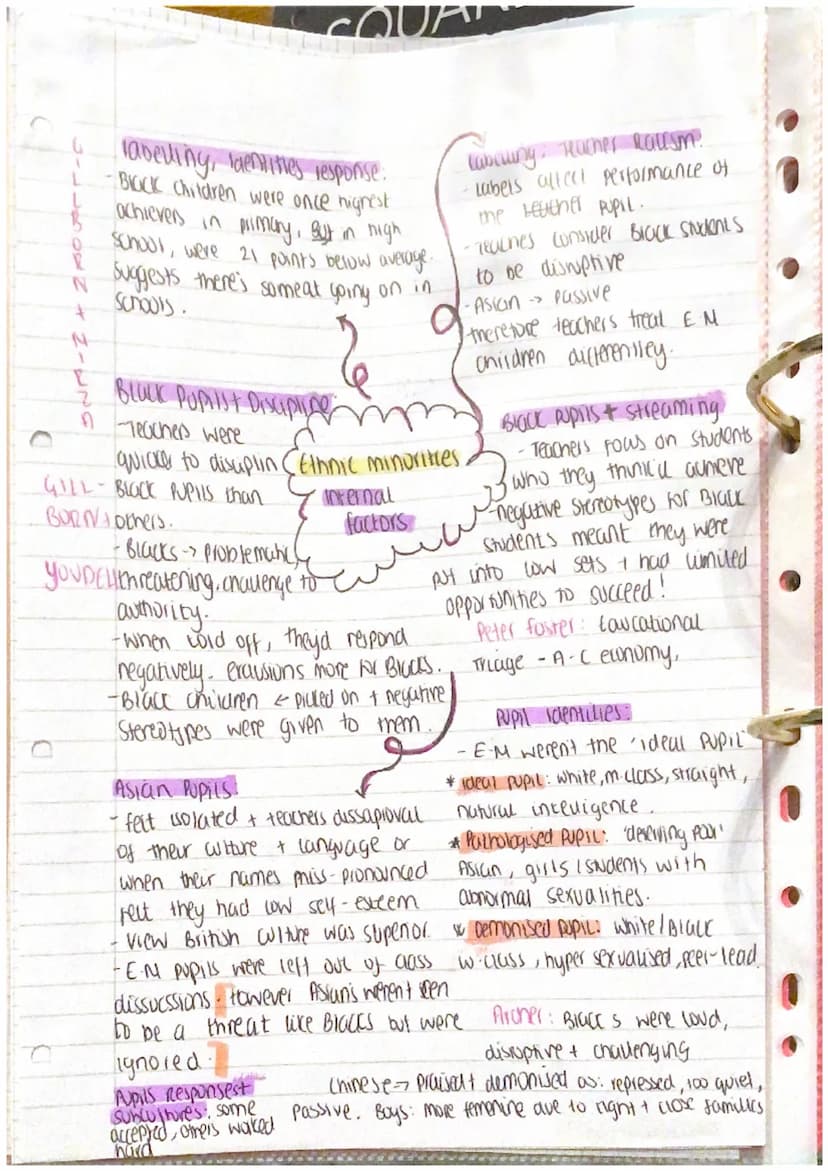 SQUARE
labelling, identities response:
- Black children were once highest
achievers in primary, But in high
school, were 21 points below average.
suggests there's someat going on in
schools.
GILLBORN + MIRZA
Labelling: Teacher Racism:
- Labels affect performance of
the teacher pupil.
- Teaches consider Black students
to be disruptive
- Asian → passive
therefore teachers treat E M
children differentley.
Black Pupils + Discipline
- Teachers were
quicker to disciplin
Black pupils than
others.
- Blacks → problematic,
threatening, challenge to
authority.
- When told off, theyd respond
negatively. exclusions more for Blacks.
- Black children ← picked on + negative
stereotypes were given to them.
GILL-
BORN +
YOUDELL
Ethnic minorities
internal
factors
Black pupils + streaming
- Teachers focus on students
who they think'll achieve
negative stereotypes for Black
students meant they were
put into low sets + had limited
opportunities to succeed!
Peter Foster: Educational
Triage - A-C economy,
Pupil identities:
- E.M werent the 'ideal pupil'
* ideal pupil: white, m.class, straight,
natural intelligence.
* Pathologised pupil: 'deserving poor'
Asian, girls / students with
abnormal sexualities.
* Demonised pupil: white/Black
w.class, hyper sexualised, peer-lead.
Archer: Black s were loud,
disruptive + challenging
Chinese → praised + demonised as: repressed, too quiet,
passive. Boys: more femenine due to tight + close families
Asian Pupils:
- felt isolated + teachers dissaproval
of their culture + language or
when their names miss-pronounced
felt they had low self-esteem
- View British culture was superior.
- E.M pupils were left out of class
dissucssions. [However Asian's werent seen
to be a threat like Blacks but were
ignored.]
Pupils Responses +
subcultures: some
accepted, others worked
hard